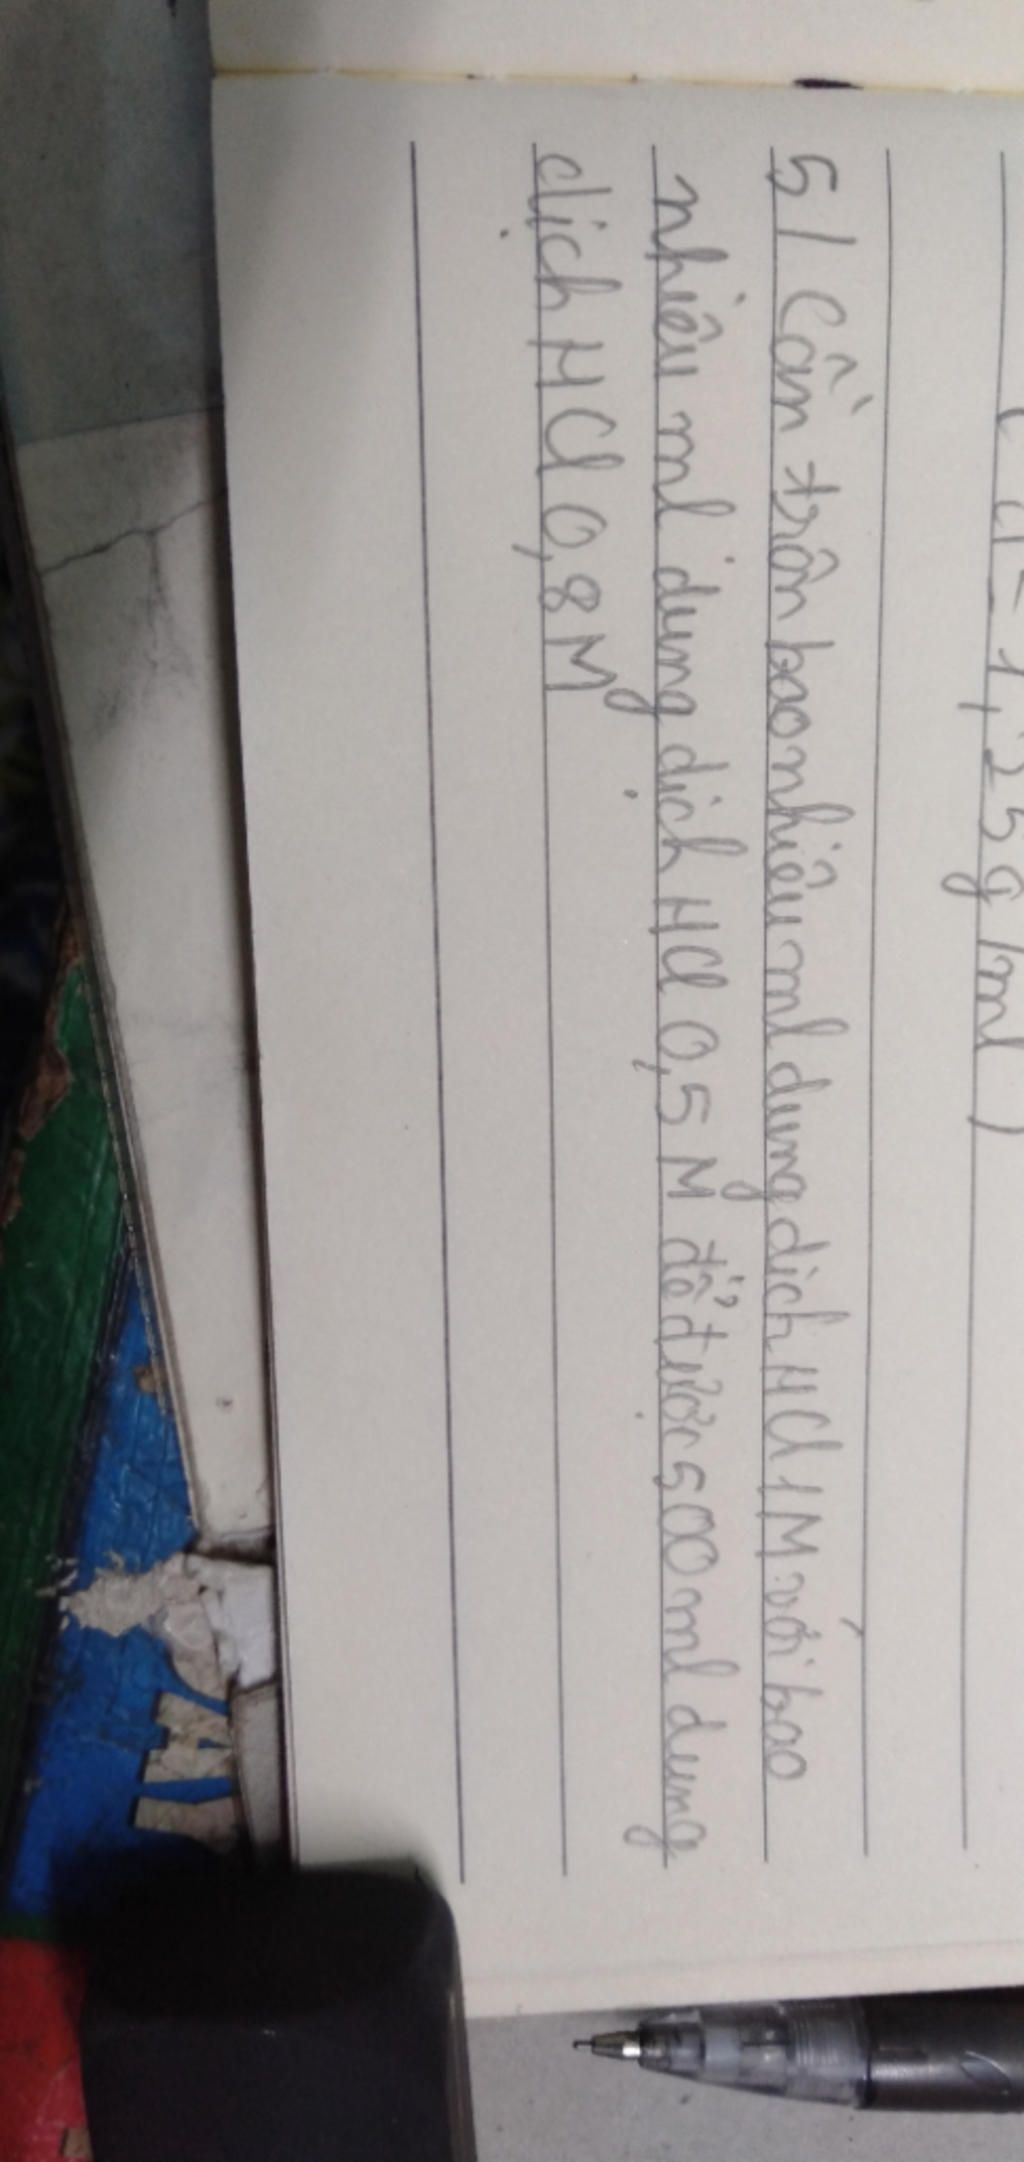 d = 1,25g/ml)
5/ Cần trộn bao nhiêu ml dung dịch HCl 1M với bao
nhiêu ml dung dịch HCl 0,5M để được 500ml dung
dịch HCl 0,8M